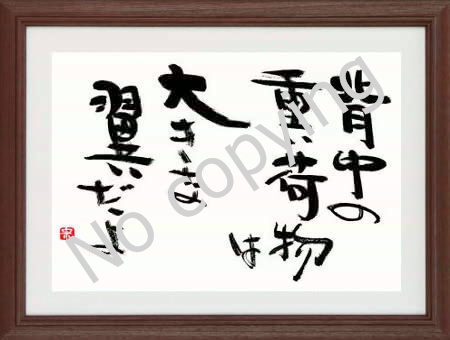 背中の
重い荷物は
大きな
翼だよ
No copying